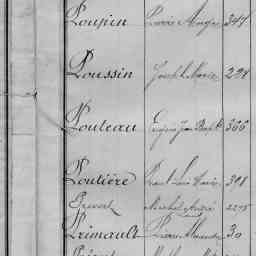 Poupin Pierre Ange 344
Poussin Joseph Marie 298
Pouteau Eugène Jean Bapt 366
Poutière Paul Louis Marie 398
Prevost Michel André 2275
Primault Pierre Alexandre 30